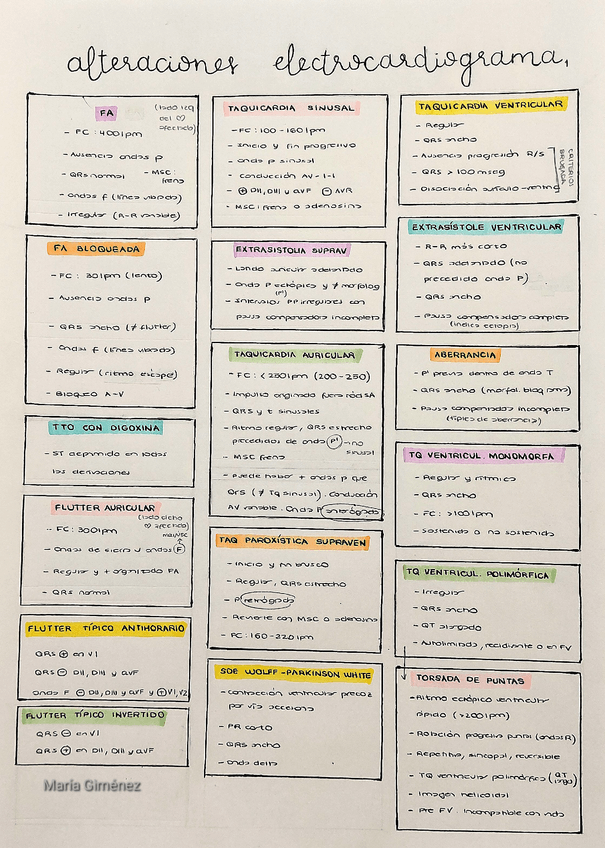 alteraciones electrocardiograma.
FA
(lado izq
del ♡
afectado)
- FC : 400 lpm
- Ausencia ondas P
- QRS normal - MSC :
frena
- ondas f (línea vibrada)
- Irregular (R-R variable)
FA BLOQUEADA
- FC : 30 lpm (lento)
- Ausencia ondas P
- QRS ancho (≠ flutter)
- Ondas f (línea vibrada)
- Regular (ritmo escape)
- Bloqueo A-V
TTO CON DIGOXINA
- ST deprimido en todas
las derivaciones
FLUTTER AURICULAR
(lado dcho
♡ afectado)
- FC : 300 lpm
mayúsc
- Ondas de sierra u ondas F
- Regular y + organizado FA
- QRS normal
FLUTTER TÍPICO ANTIHORARIO
QRS ⊕ en V1
QRS ⊖ DII, DIII y aVF
Ondas F ⊖ DII, DIII y aVF y ⊕ V1, V2
FLUTTER TÍPICO INVERTIDO
QRS ⊖ en V1
QRS ⊕ en DII, DIII y aVF
María Giménez
TAQUICARDIA SINUSAL
- FC : 100 - 160 lpm
- Inicio y fin progresivo
- onda P sinusal
- Conducción AV - 1-1
- ⊕ DII, DIII y aVF ⊖ AVR
- MSC : frena o adenosina
EXTRASISTOLIA SUPRAV
- Latido auricular adelantado
- Onda P ectópica y ≠ morfolog
(P')
- Intervalos PP irregulares con
pausa compensadora incompleta
TAQUICARDIA AURICULAR
- FC : < 250 lpm (200 - 250)
- Impulso originado fuera nódulo SA
- QRS y t sinusales
- Ritmo regular, QRS estrecho
precedidos de onda P' → no
sinusal
- MSC frena
- Puede haber + ondas P que
QRS (≠ TQ sinusal). Conducción
AV variable. Onda P anterógrada
TAQ PAROXÍSTICA SUPRAVEN
- Inicio y fin brusco
- Regular, QRS estrecho
- P retrógrada
- Revierte con MSC o adenosina
- FC : 160 - 220 lpm
SDE WOLFF - PARKINSON WHITE
- Contracción ventricular precoz
por vía accesoria
- PR corto
- QRS ancho
- onda delta
TAQUICARDIA VENTRICULAR
- Regular
- QRS ancho
- Ausencia progresión R/S
- QRS > 100 mseg
- Disociación auriculo-ventric
CRITERIOS
BRUGADA
EXTRASÍSTOLE VENTRICULAR
- R-R más corto
- QRS adelantado (no
precedido onda P)
- QRS ancho
- Pausa compensadora completa
(indica ectopia)
ABERRANCIA
- P' previa dentro de onda T
- QRS ancho (morfol. bloq rama)
- Pausa compensadora incompleta
(típica de aberrancia)
TQ VENTRICUL. MONOMORFA.
- Regular y rítmica
- QRS ancho
- FC : > 100 lpm
- Sostenida o no sostenida
TQ VENTRICUL. POLIMÓRFICA
- Irregular
- QRS ancho
- QT alargado
- Autolimitada, recidivante o en FV
TORSADA DE PUNTAS
- Ritmo ectópico ventricular
rápido (> 200 lpm)
- Rotación progresiva punta (ondas R)
- Repetitiva, sincopal, reversible
- TQ ventricular polimórfica (QT
largo)
- Imagen helicoidal
- Pre FV : Incompatible con vida